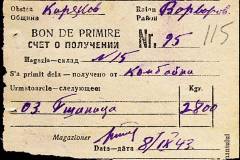 Obștea
Община Карянов Raion Ворваров.
Район
BON DE PRIMIRE
СЧЕТ О ПОЛУЧЕНИИ Nr. 95 115
Magazia—склад N/5
S'a primit dela — получено от Комбайна
Urmatoarele — следующее: Kgr.
03. Пшаница 2800
Magazioner
Data—дата 8/IX 43.